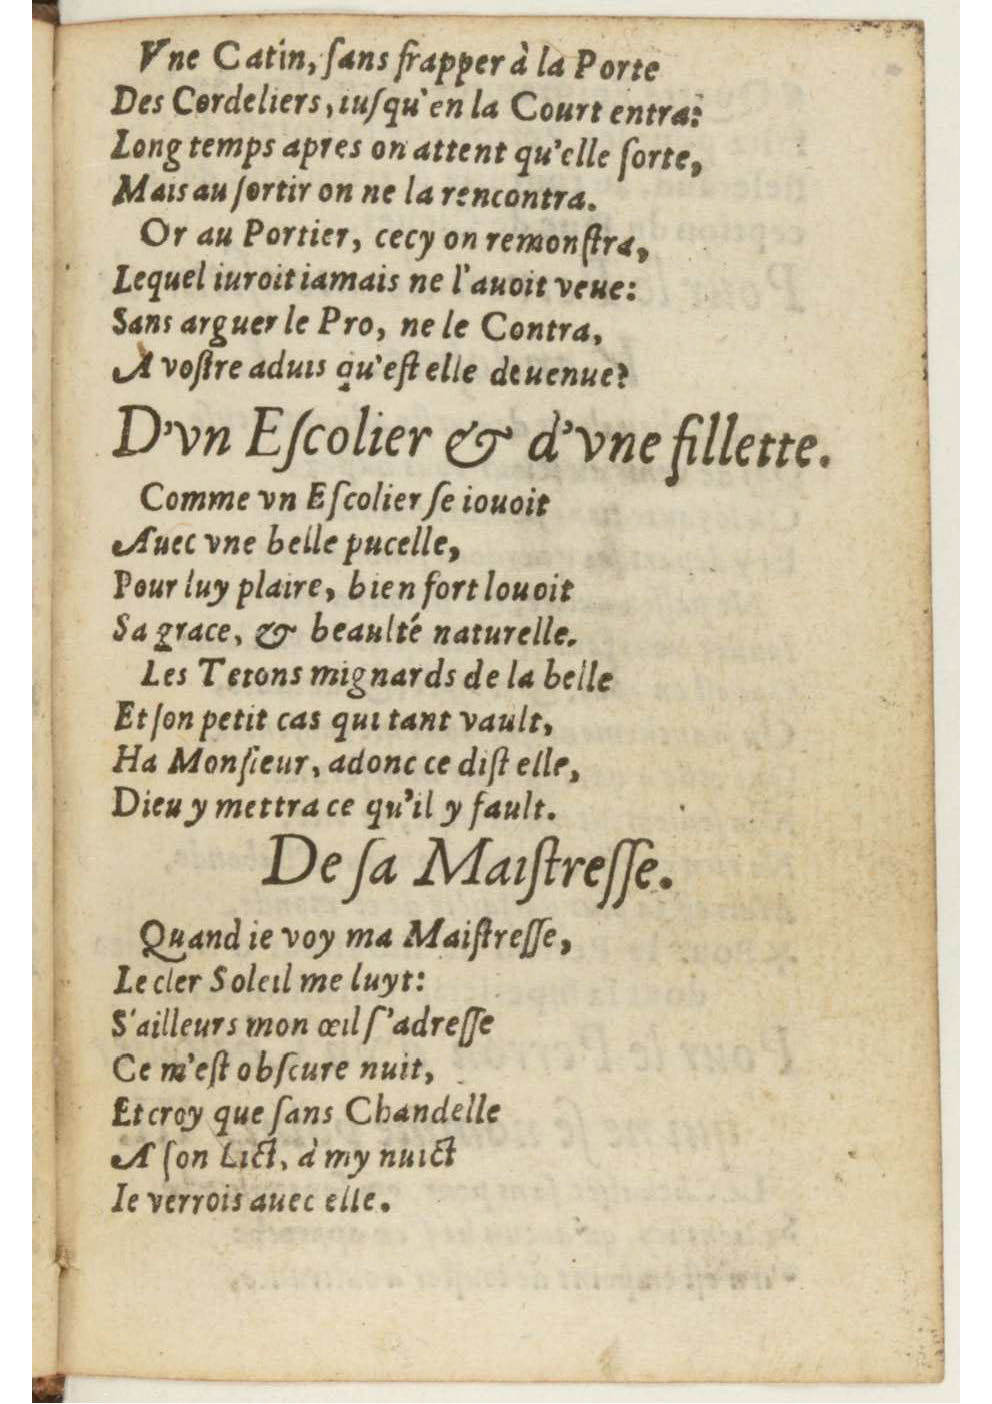 Vne Catin, ſans frapper à la Porte
Des Cordeliers, iuſqu'en la Court entra:
Long temps apres on attent qu'elle ſorte,
Mais au ſortir on ne la rencontra.
Or au Portier, cecy on remonſtra,
Lequel iuroit iamais ne l'auoit veue:
Sans arguer le Pro, ne le Contra,
A voſtre aduis qu'eſt elle deuenue?
D'vn Eſcolier & d'vne fillette.
Comme vn Eſcolier ſe iouoit
Auec vne belle pucelle,
Pour luy plaire, bien fort louoit
Sa grace, & beaulté naturelle.
Les Tetons mignards de la belle
Et ſon petit cas qui tant vault,
Ha Monſieur, adonc ce diſt elle,
Dieu y mettra ce qu'il y fault.
De ſa Maiſtreſſe.
Quand ie voy ma Maiſtreſſe,
Le cler Soleil me luyt:
S'ailleurs mon œil ſ'adreſſe
Ce m'eſt obſcure nuit,
Et croy que ſans Chandelle
A ſon Lict, à my nuict
Ie verrois auec elle.